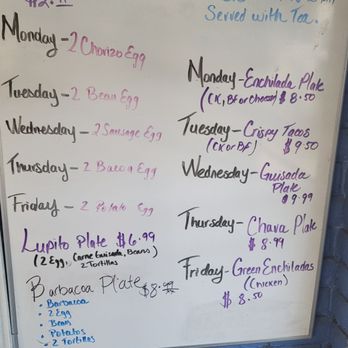 $2.
Served with Tea.
Monday - 2 Chorizo Egg
Tuesday - 2 Bean Egg
Wednesday - 2 Sausage Egg
Thursday - 2 Bacon Egg
Friday - 2 Potato Egg
Lupito Plate $6.99
(2 Egg, Carne Guisada, Beans)
2 Tortillas
Barbacoa Plate $8.99
• Barbacoa
• 2 Egg
• Bean
• Potatos
• 2 Tortillas
Monday - Enchilada Plate
(CK, Bf or Cheese) $8.50
Tuesday - Crispy Tacos
(CK or Bf) $9.50
Wednesday - Guisada
Plate
$9.99
Thursday - Chava Plate
$8.99
Friday - Green Enchiladas
(Chicken)
$8.50